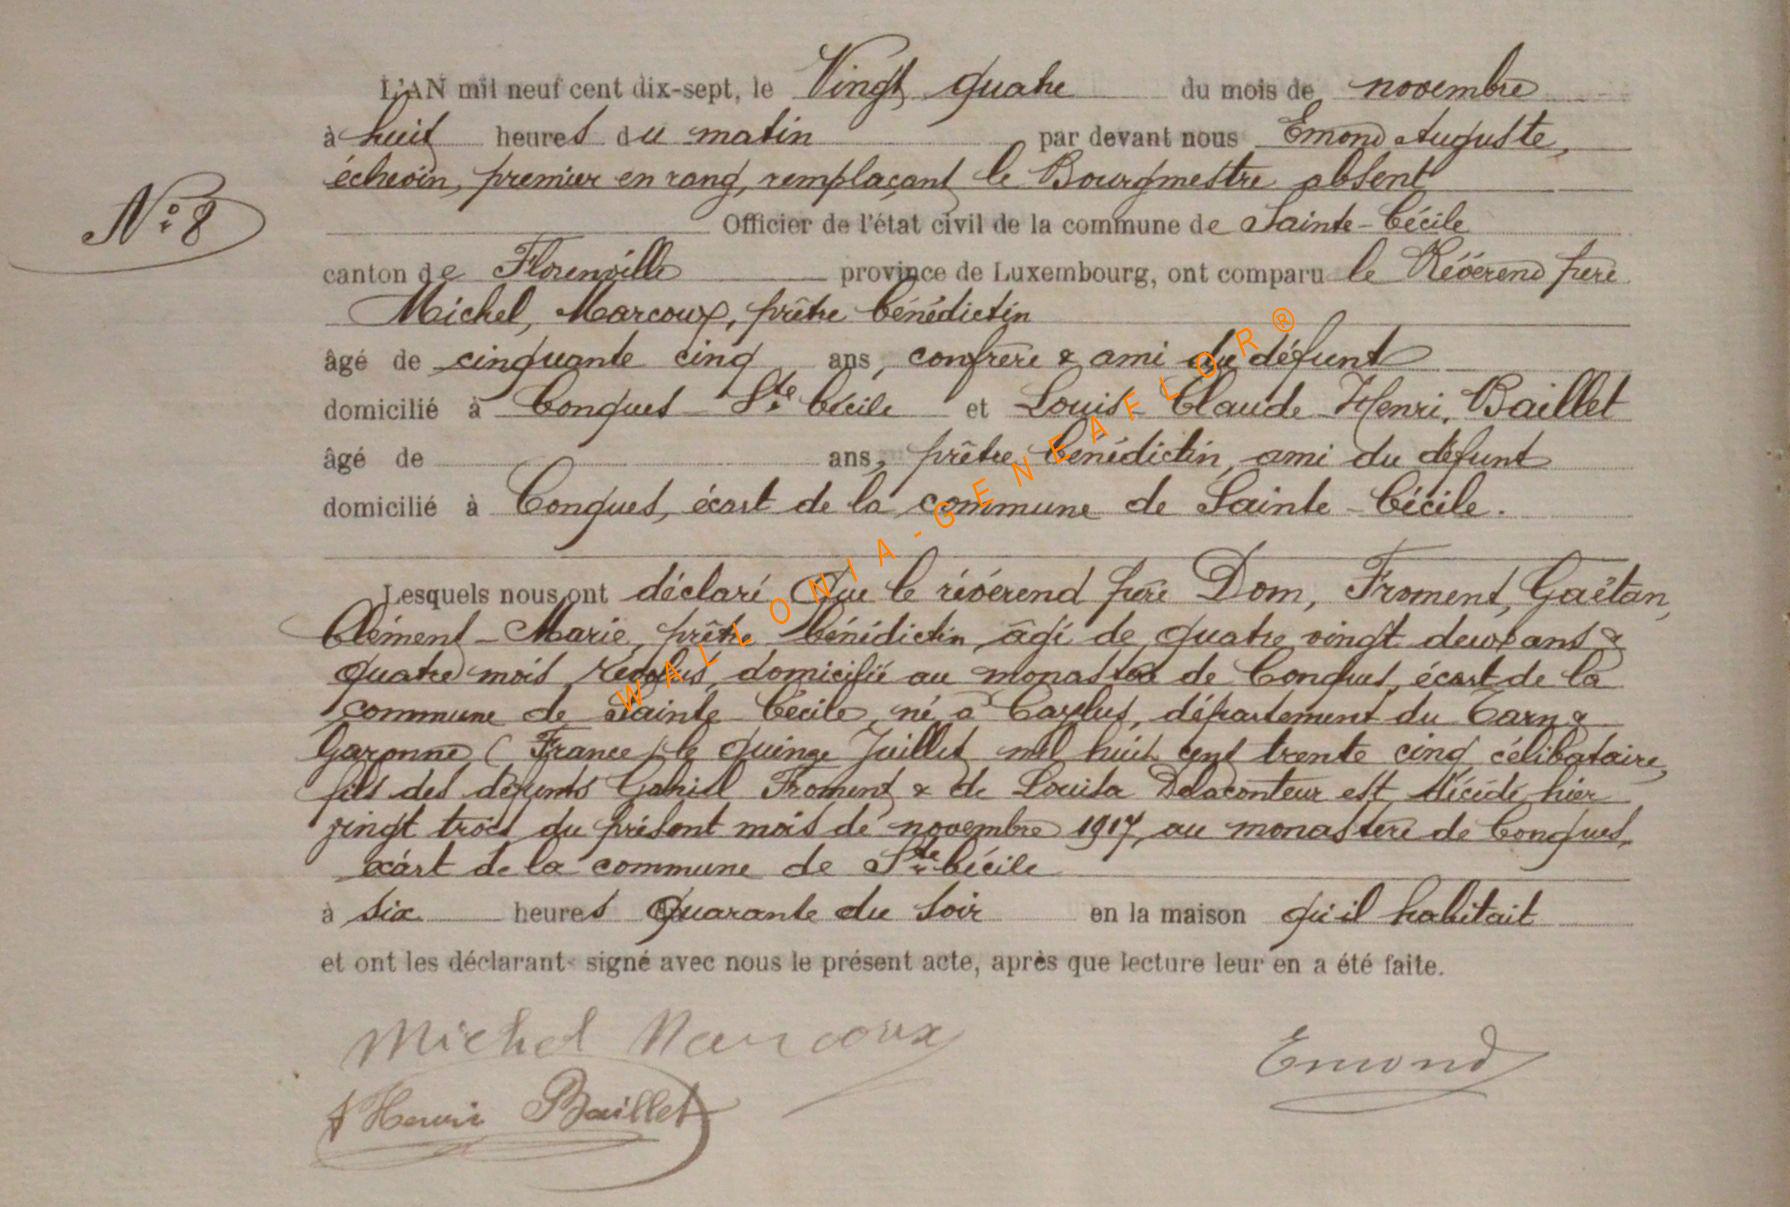 L'AN mil neuf cent dix-sept, le Vingt quatre du mois de novembre
à huit heures du matin par devant nous Emond Auguste,
échevin, premier en rang, remplaçant le Bourgmestre absent
N° 8
Officier de l'état civil de la commune de Sainte-Cécile
canton de Florenville province de Luxembourg, ont comparu le Révérend père
Michel, Marcoux, prêtre bénédictin
âgé de cinquante cinq ans, confrère & ami du défunt
domicilié à Conques Ste Cécile et Louis-Claude-Henri, Baillet
âgé de ans, prêtre bénédictin, ami du défunt
domicilié à Conques, écart de la commune de Sainte-Cécile.
Lesquels nous ont déclaré Que le révérend père Dom, Froment, Gaëtan,
Clément-Marie, prêtre bénédictin âgé de quatre vingt deux ans &
quatre mois révolus, domicilié au monastère de Conques, écart de la
commune de Sainte Cécile, né à Caylus, département du Tarn &
Garonne (France) le quinze Juillet mil huit cent trente cinq célibataire,
fils des défunts Gabriel Froment & de Louisa Delaconteur est décédé hier
vingt trois du présent mois de novembre 1917, au monastère de Conques,
écart de la commune de Ste Cécile
à six heures Quarante du soir en la maison qu'il habitait
et ont les déclarants signé avec nous le présent acte, après que lecture leur en a été faite.
Michel Marcoux
Emond
Henri Baillet
WALLONIA-GENEAFLOR®